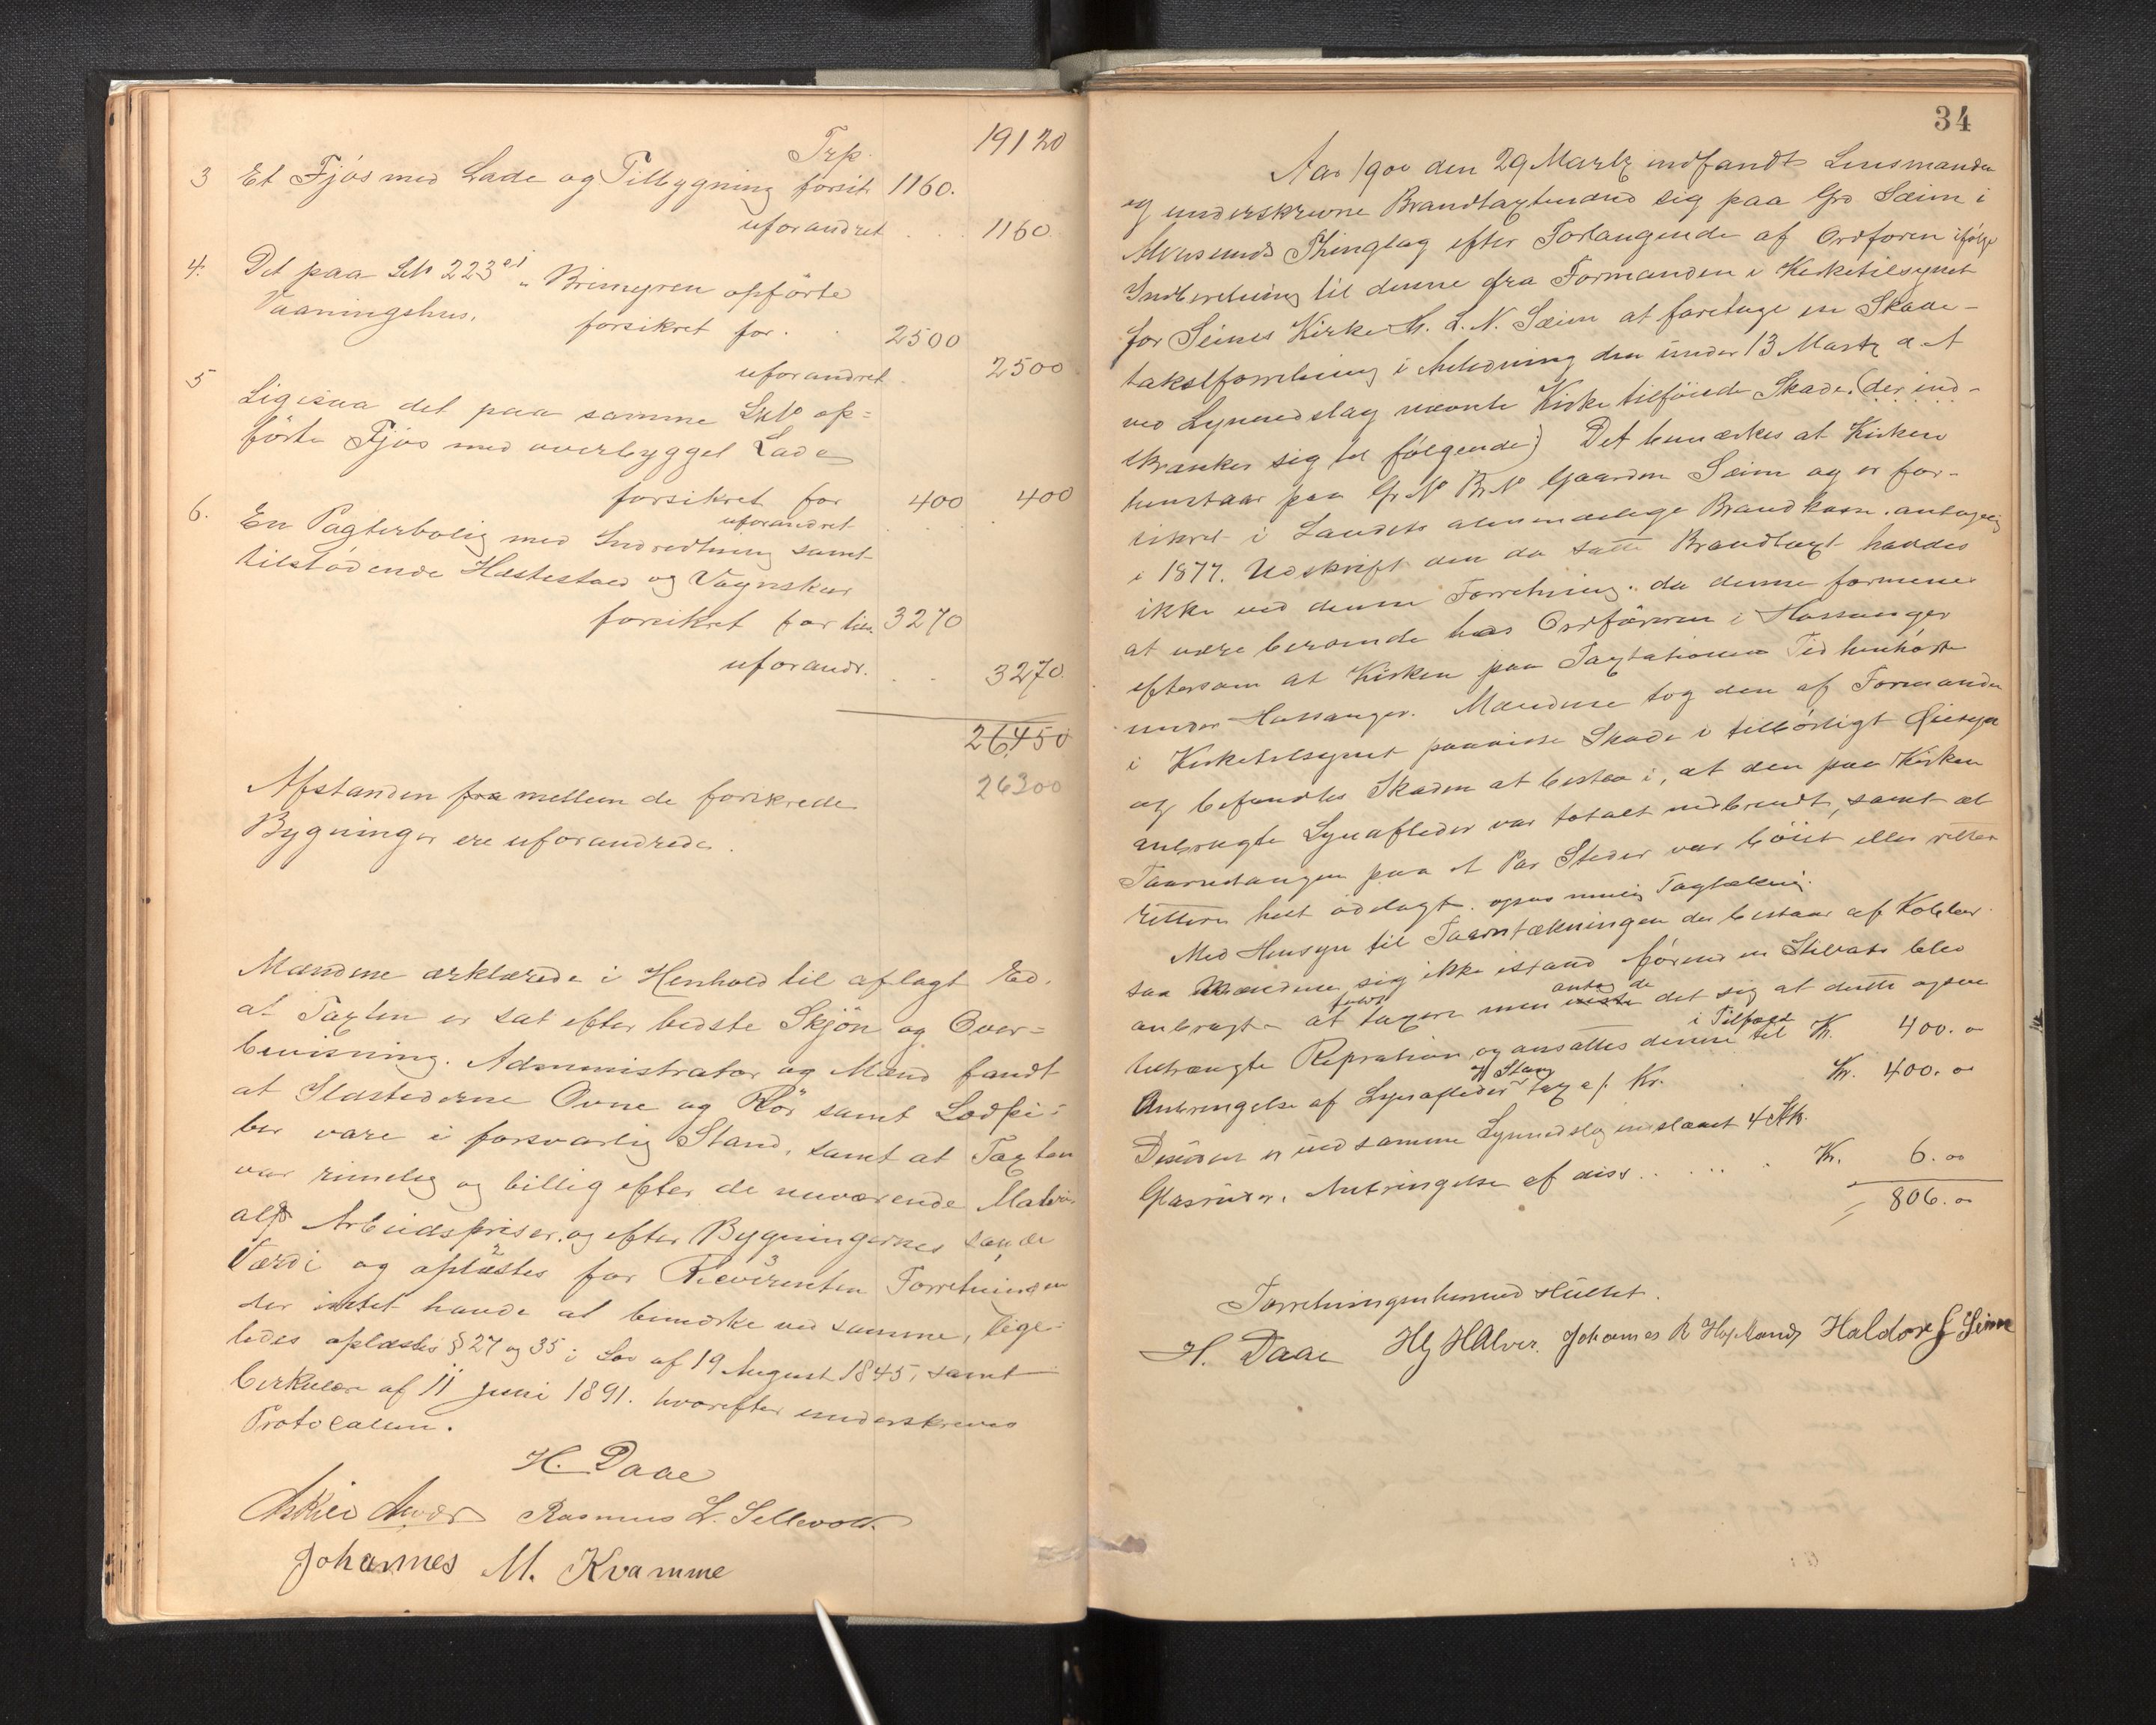 Trp. 19120
3 Et Fjøs med Lade og Tilbygning forsik 1160.
uforandret . . 1160
4. Det paa LNo 223 a1 " Brimyren opførte
Vaaningshus. forsikret for . . 2500
uforandret . 2500
5 Ligesaa det paa samme LNo op=
førte Fjøs med overbygget Lade
forsikret for 400 400
uforandret . . .
6. En Pagterbolig med Indredtning samt
tilstødende Hestestald og Vognskur
forsikret for till. 3270
uforandr. . . 3270.
26,450
26300
Afstanden fra mellem de forsikrede
Bygninger ere uforandrede.
Mændene erklærede i Henhold til aflagt Ed.
at Taxten er sat efter bedste Skjøn og Over=
bevisning. Administrator og Mænd fandt
at Ildstederne Ovne og Rør samt Lodpi=
ber vare i forsvarlig Stand, samt at Taxten
var rimelig og billig efter de nuværende Materi
al & Arbeidspriser og efter Bygningernes sande
Værdi og oplæstes for Recvirenten Forretningen
der intet havde at bemærke ved samme, lige=
ledes oplæstes § 27 og 35 i Lov af 19 August 1845, samt
Cirkulære af 11 Juni 1891. hvorefter underskreves
Protocallen.
H. Daae
Askild Rasmus L. Sellevold.
Johannes M. Kvamme
34
Aar 1900 den 29 Martz indfandt Lensmanden
og underskrevne Brandtaxtmænd sig paa Grd Sæim i
Alversunds Thinglag efter Forlangende af Ordføren ifølge
Indberetning til denne fra Formanden i Kirketilsynet
for Seims Kirke Hr. L. N. Sæim at foretage en Skade-
takstforretning i Anledning den under 13 Martz a. c
ved Lynnedslag nævnte Kirke tilføiede Skade. (der ind-
skrænker sig til følgende:) Det bemærkes at Kirken
henstaar paa Gr.No Br.No Gaarden Sæim og er for-
sikret i Landets almindelige Brandkasse. antagelig
i 1877. Udskrift den da satte Brandtaxt havdes
ikke ved denne Forretning. da denne formenes
at være beroende hos Ordføreren i Hossanger
eftersom at Kirken paa Taxtationens Tid henhørte
under Hossanger. Mændene tog den af Formanden
i Kirketilsynet paaviste Skade i tilbørligt Øiesyn
og befandtes Skaden at bestaa i, at den paa Kirken
anbragte Lynafleder var totalt nedbrændt, samt at
Taarnstangen paa et Par Steder var bøiet eller rettere
rettere helt ødelagt. ogsaa Tagtækning.
Med Hensyn til Taarntækningen der bestaar af Kobber
saa Mændene sig ikke istand førend en Stillads blev
anbragt at taxere men viste antog de det sig at dette ogsaa
tiltrængte Repration og ansattes denne i Tilfæld til Kr. 400.00
Anbringelse af Lynafleder og Stang tax a/. Kr. . Kr. 400.00
Desuden er ved samme Lynnedslag indslaaet 4 Stk.
Glasruder. Anbringelse af diss . . . . . . Kr. 6.00
= 806.00
Forretningen hermed sluttet.
H. Daae Johannes R Haldor J Seim